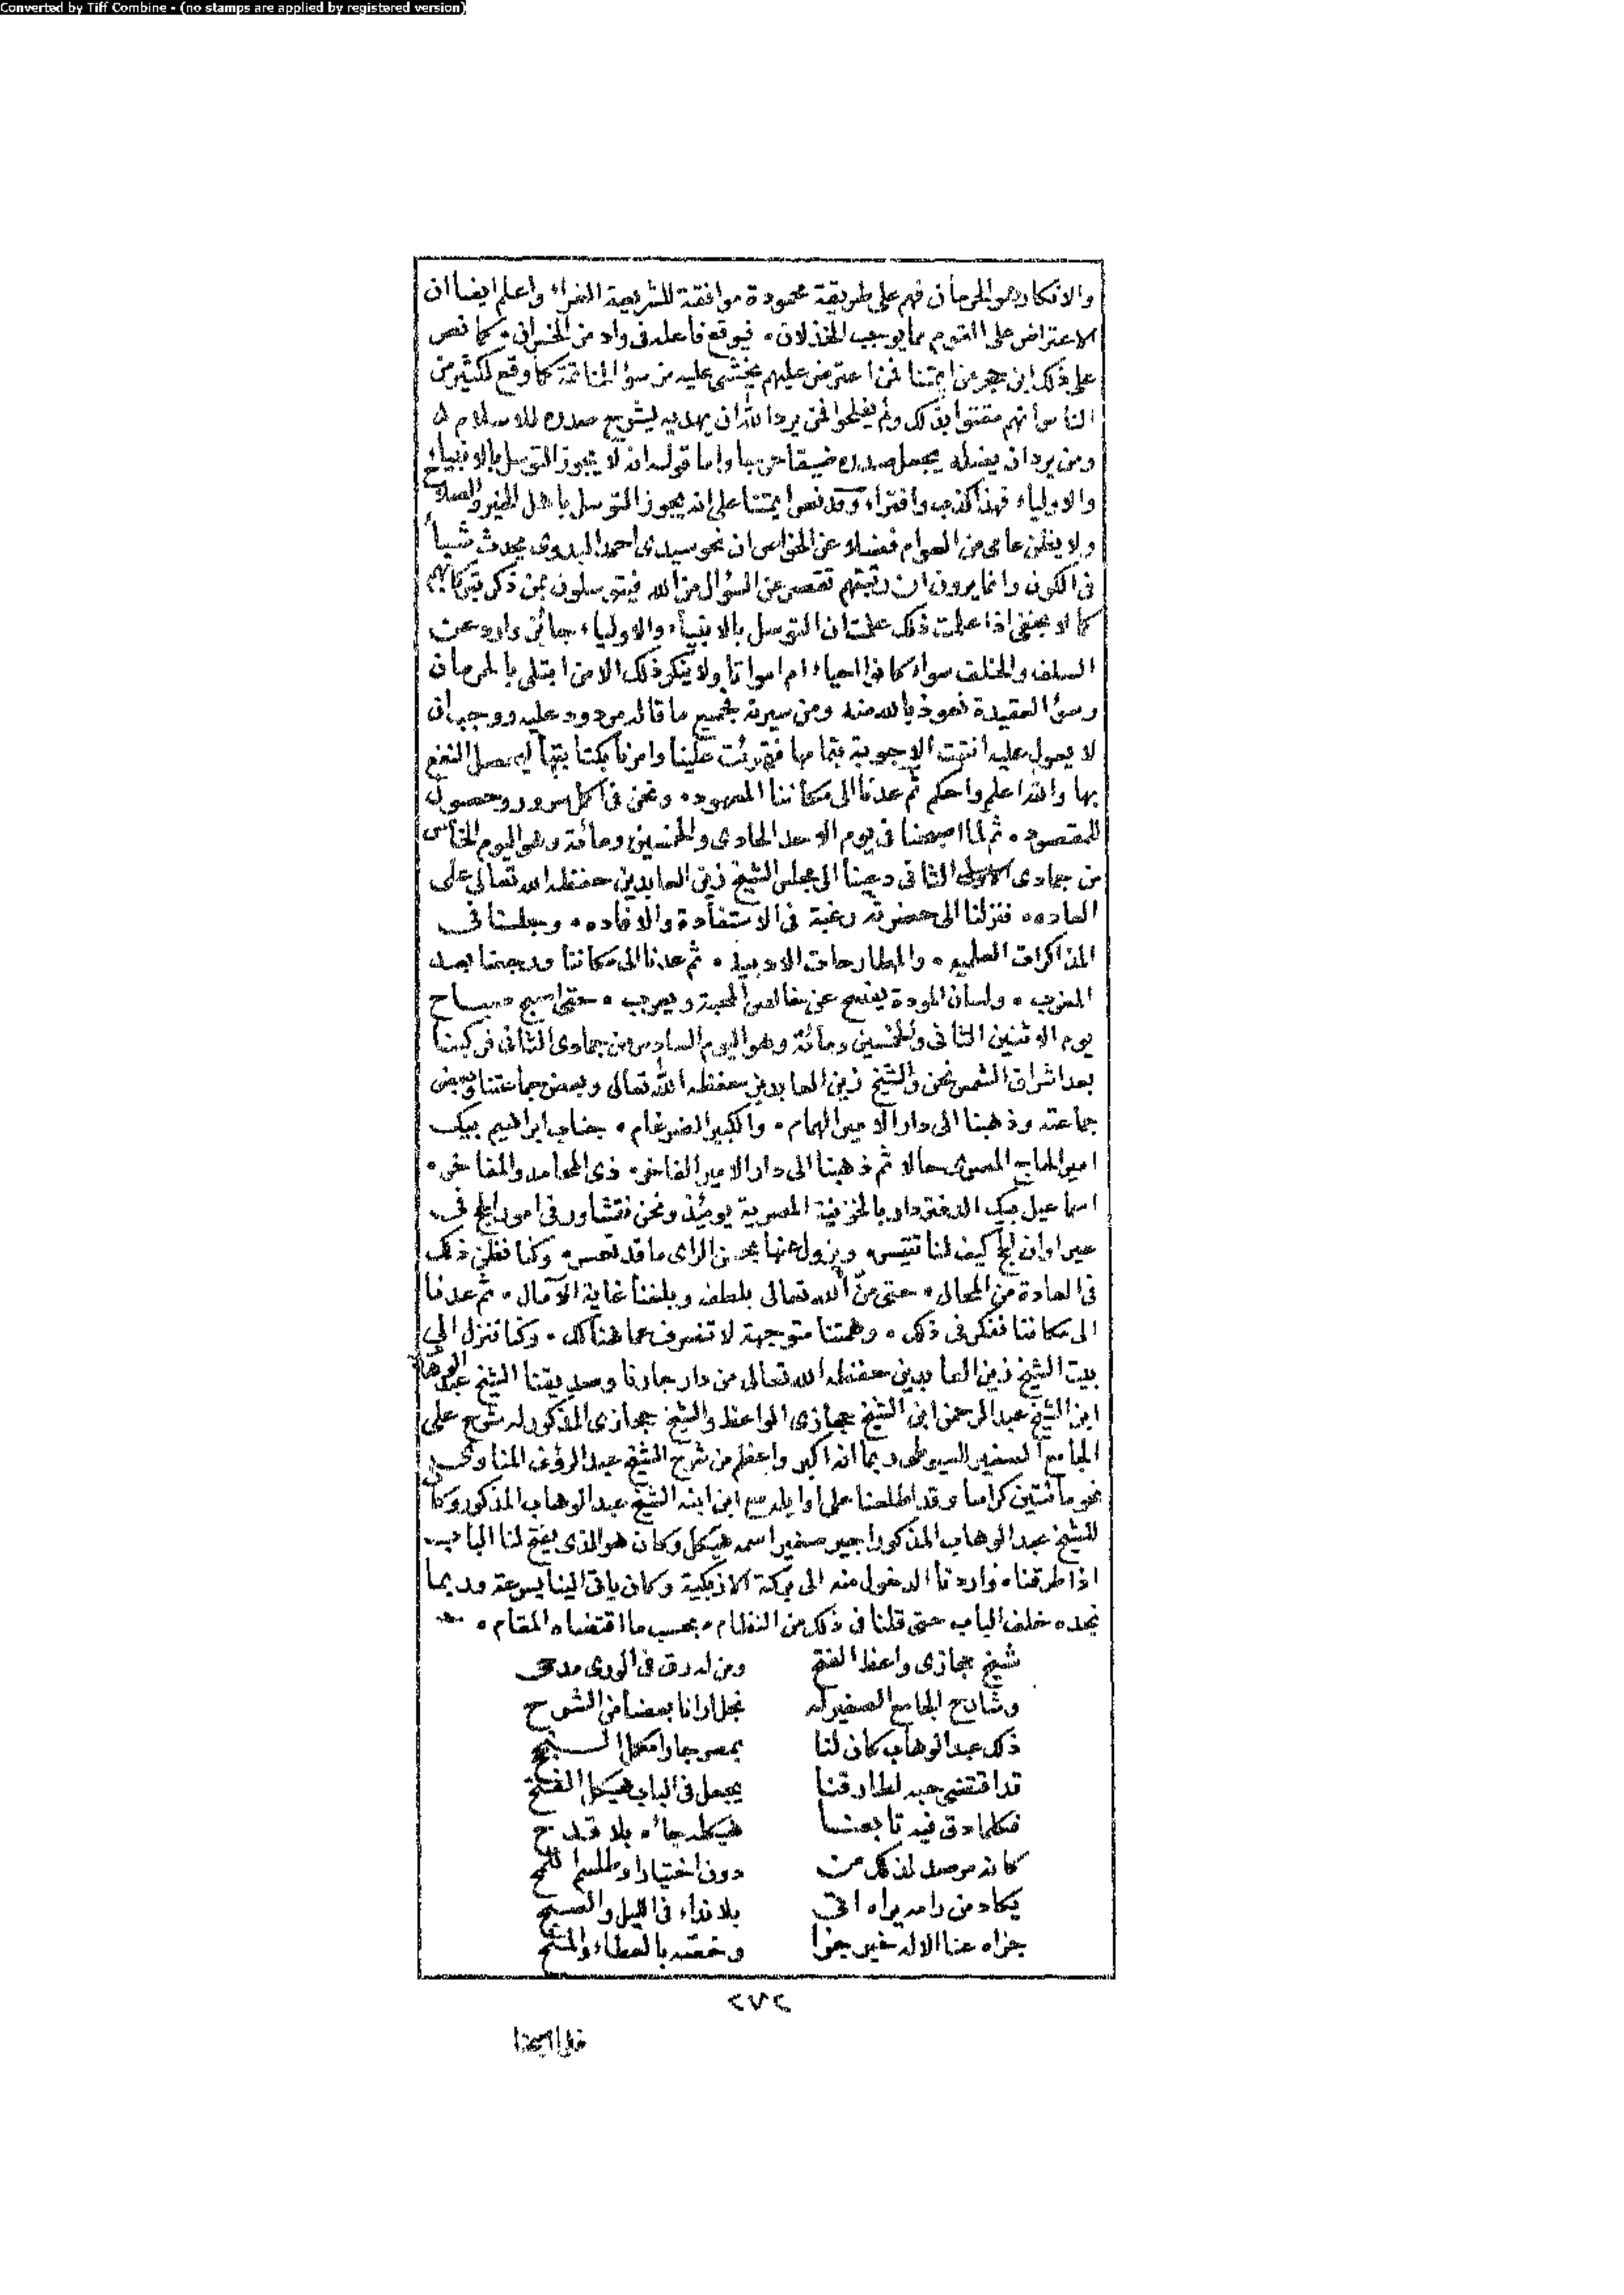 Converted by Tiff Combine - (no stamps are applied by registered version)
والانكار هو الحرمان فهم على طريقة محمودة موافقة للشريعة الغراء واعلم ايضا ان
الاعتراض على القوم مما يوجب الخذلان. فيوقع فاعله فى واد من الخسران. كما نص
على ذلك ابن حجر من ايمتنا فمن اعترض عليهم يخشى عليه من سؤ الخاتمة كما وقع لكثير من
الناس انهم مقتوا بذلك ولم يفلحوا فمن يرد الله ان يهديه يشرح صدره للاسلام
ومن يرد ان يضله يجعل صدره ضيقا حرجا واما قوله انه لا يجوز التوسل بالانبياء
والاولياء فهذا كذب وافتراء وقد نص ايمتنا على انه يجوز التوسل باهل الخير والصلاح
ولا يظن عامى من العوام فضلا عن الخواص ان نحو سيدى احمد البدوى يحدث شيأ
فى الكون وانما يرون ان رتبتهم تقصر عن السؤال من الله فيتوسلون بمن ذكر تبركا بهم
كما لا يخفى اذا علمت ذلك علمت ان التوسل بالانبياء والاولياء جائز وارد عن
السلف والخلف سواء كانوا احياء ام امواتا ولا ينكر ذلك الا من ابتلى بالحرمان
وسؤ العقيدة نعوذ بالله منه ومن سيرته فجميع ما قاله مردود عليه ووجب ان
لا يعول عليه انتهت الاجوبة بتمامها فقرئت علينا وامرنا بكتابتها ليحصل النفع
بها والله اعلم واحكم ثم عدنا الى مكاننا المعهود. ونحن فى اكمل سرور وحصول
المقصود. ثم لما اصبحنا فى يوم الاحد الحادى والخمسين ومائة وهو اليوم الخامس
من جمادى الثانى دعينا الى مجلس الشيخ زين العابدين حفظه الله تعالى على
العاده. فنزلنا الى حضرته رغبة فى الاستفادة والافاده. وجلسنا فى
المذاكرات العلميه. والمطارحات الادبيه. ثم عدنا الى مكاننا ورجعنا بعد
المغرب. ولسان المودة يفصح عن خالص المحبة ويعرب. حتى اصبح صباح
يوم الاثنين الثانى والخمسين ومائة وهو اليوم السادس من جمادى الثانى فركبنا
بعد اشراق الشمس نحن والشيخ زين العابدين حفظه الله تعالى وبعض جماعتنا وبعض
جماعته وذهبنا الى دار الامير الهمام. والكبير الضرغام. جناب ابراهيم بيك
امير الحاج المصرى حالا ثم ذهبنا الى دار الامير الفاخر. ذى المحامد والمفاخر.
اسماعيل بيك الدفتردار بالخزينة المصرية يومئذ ونحن نتشاور فى امور الحج فى
غير اوان الحج كيف لنا تتيسر. ويزول عنها بحسن الراى ما قد تعسر. وكنا نظن ذلك
فى العادة من المحال. حتى منّ الله تعالى بلطفه وبلغنا غاية الآمال. ثم عدنا
الى مكاننا نفكر فى ذلك. وهمتنا متوجهة لا تنصرف عما هنالك. وكنا ننزل الى
بيت الشيخ زين العابدين حفظه الله تعالى من دار جارنا وصديقنا الشيخ عبد الوهاب
ابن الشيخ عبد الرحمن ابن الشيخ حجازى الواعظ والشيخ حجازى المذكور له شرح على
الجامع الصغير للسيوطى وربما انه اكبر واعظم من شرح الشيخ عبد الرؤف المناوى
نحو مائتين كراسا وقد اطلعنا على اوايله مع ابن ابنه الشيخ عبد الوهاب المذكور وكان
للشيخ عبد الوهاب المذكور اجير صغير اسمه هيكل وكان هو الذى يفتح لنا الباب
اذا طرقناه واردنا الدخول منه الى بركة الازبكية وكان ياتى الينا بسرعة وربما
نجده خلف الباب حتى قلنا فى ذلك من النظام. بحسب ما اقتضاه المقام.
شيخ حجازى واعظ الفتح ومن له رق فى الورى مدحى
وشارح الجامع الصغير له نجل ارانا بعضا من الشرح
ذلك عبد الوهاب كان لنا بمصر جارا مكمل
قد اقتضى حبه لطارقنا يجعل فى الباب هيكل الفتح
فكلما دق فيه تابعنا هيكله جاءه بلا قدح
كانه مرصد لذلك من دون اختيار وطلسم
يكاد من رامه يراه اتى بلا نداء فى الليل والصبح
جزاه عنا الاله خير جزا وخصه بالعطاء والمنح
٢٧٢
فلما اصبحنا